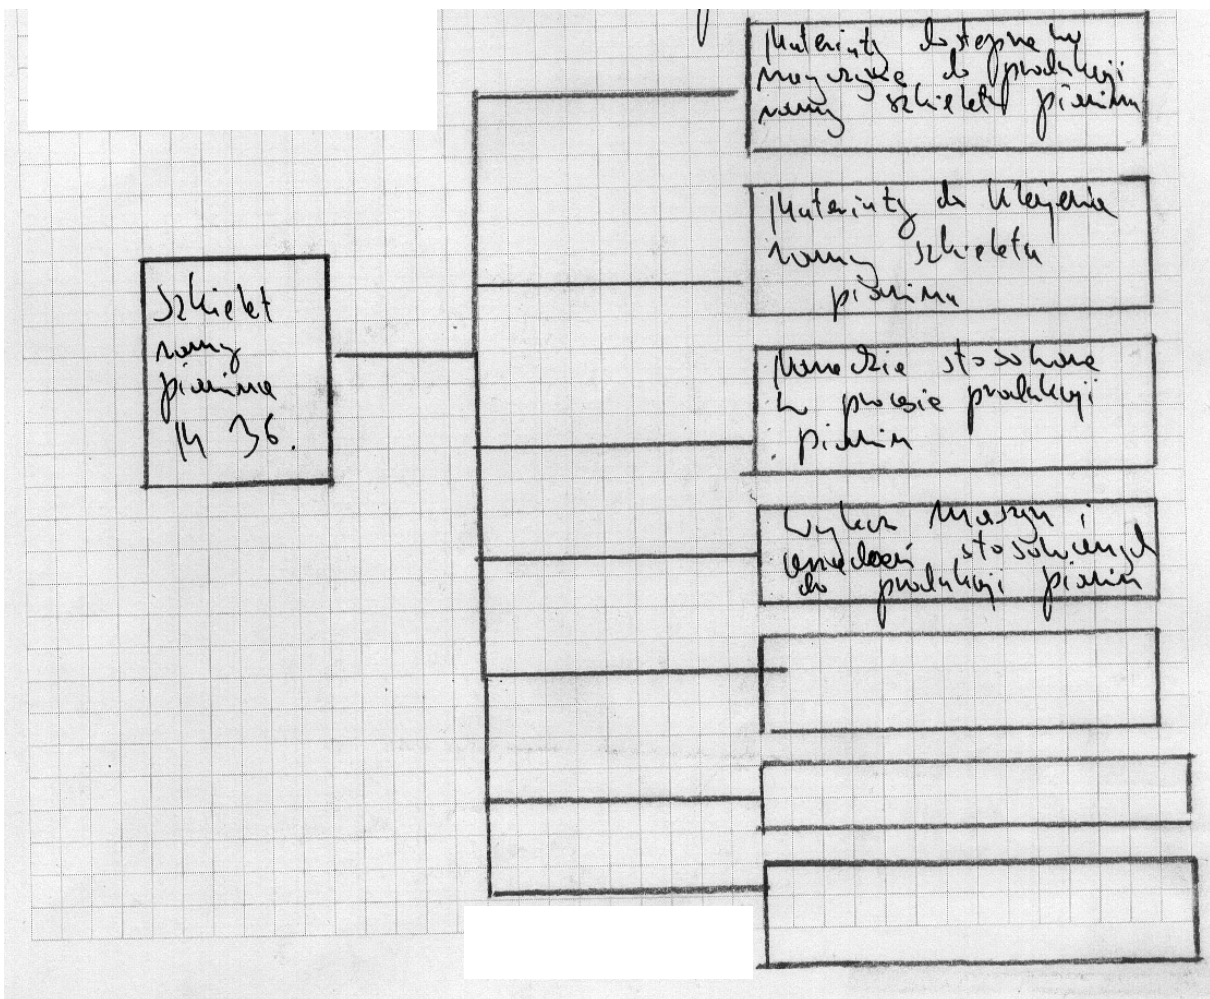 Szkielet
ramy
pianina
M 36.
Materiały dostępne w
do produkcji
ramy szkieletu pianina
Materiały do klejenia
ramy szkieletu
pianina
Narzędzia stosowane
w procesie produkcji
pianin
Wykaz maszyn i
urządzeń stosowanych
do produkcji pianin